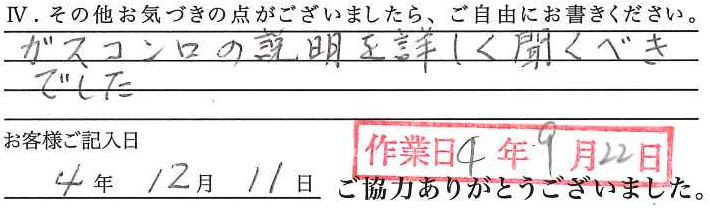 Ⅳ．その他お気づきの点がございましたら、ご自由にお書きください。
ガスコンロの説明を詳しく聞くべき
でした
お客様ご記入日
作業日4年9月22日
4年12月11日
ご協力ありがとうございました。